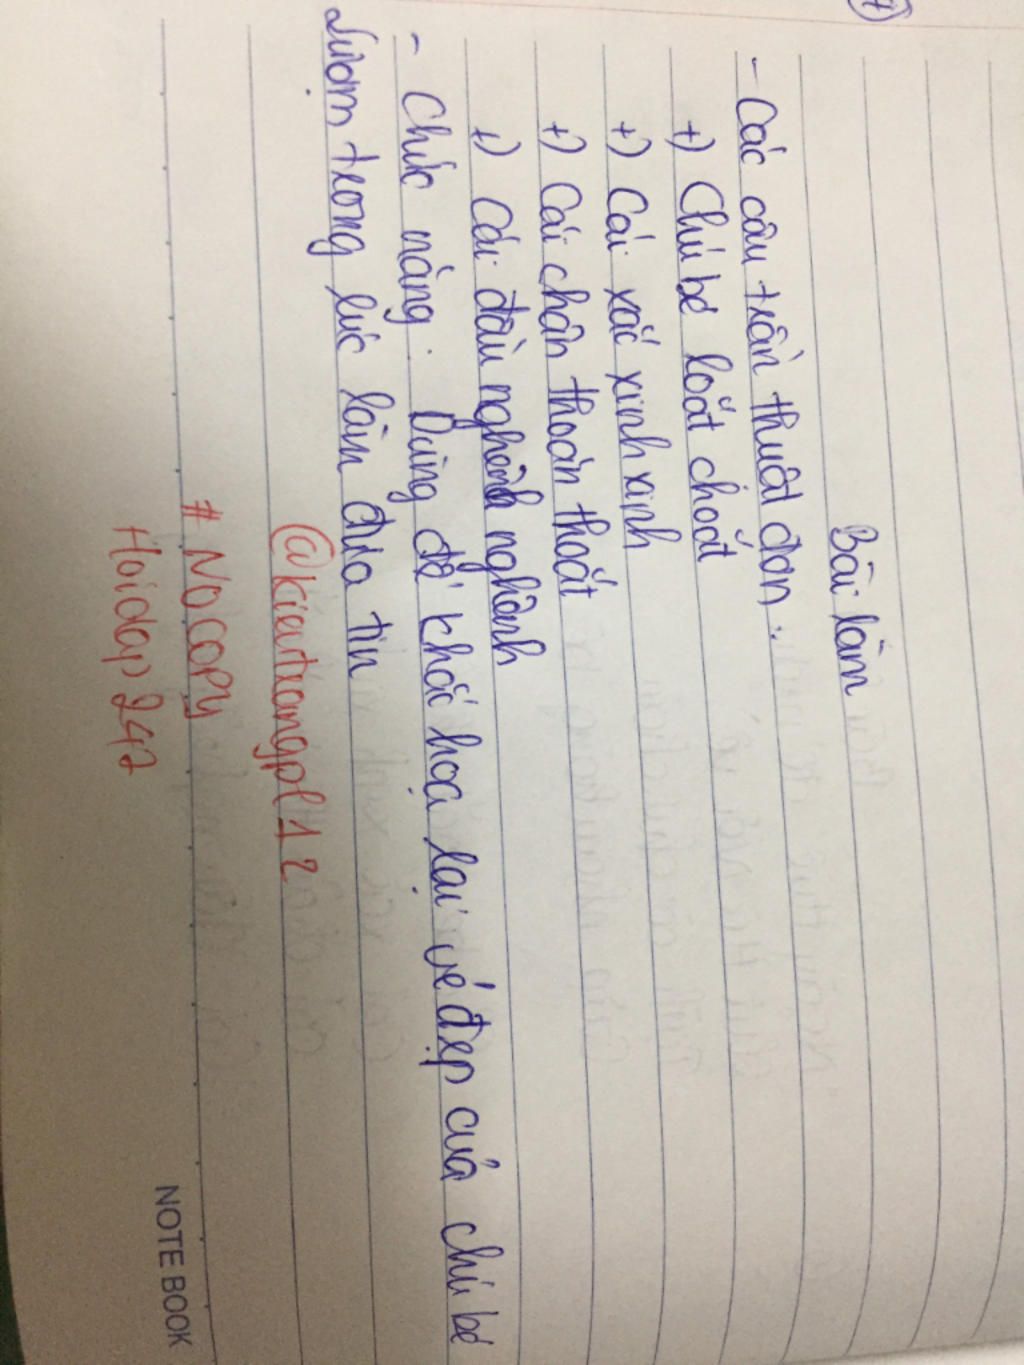 7
Bài làm
- Các câu trần thuật đơn:
+) Chú bé loắt choắt
+) Cái xắc xinh xinh
+) Cái chân thoăn thoắt
+) Cái đầu nghênh nghênh
- Chức năng: Dùng để khắc họa lại vẻ đẹp của chú bé
Lượm trong lúc làm đưa tin
@kieutrangpl12
# NOCOPY
Hoidap 247
NOTE BOOK